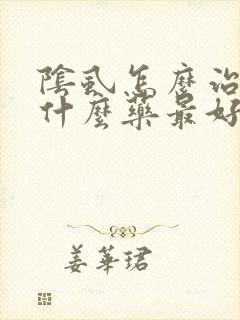 陰虱怎麼治
什麼藥最好
姜華珺